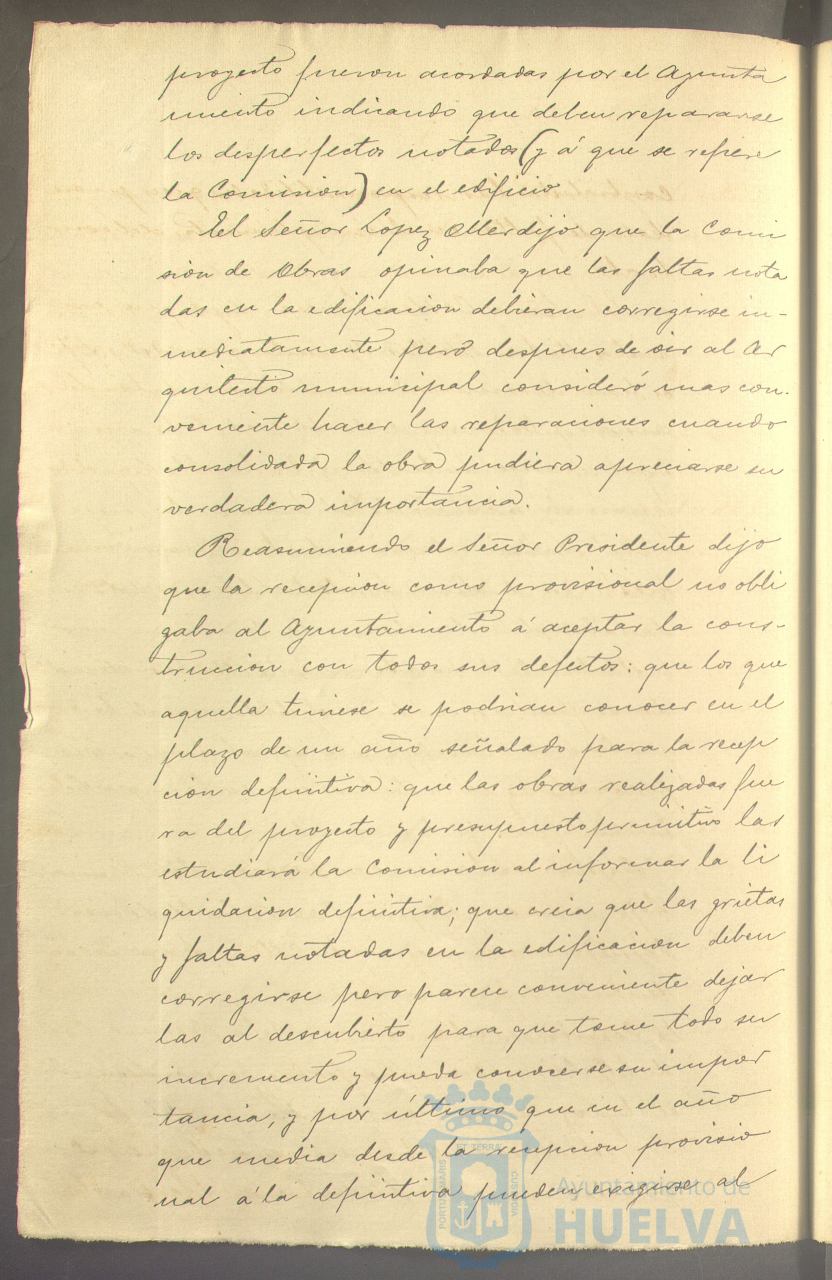 proyecto fueron acordadas por el Ayunta
miento indicando que deben repararse
los desperfectos notados (y á que se refiere
la Comision) en el edificio
El Señor Lopez Oller dijo que la Comi
sion de Obras opinaba que las faltas nota
das en la edificacion debieran corregirse in-
mediatamente pero despues de oir al Ar
quitecto municipal consideró mas con-
veniente hacer las reparaciones cuando
consolidada la obra pudiera apreciarse su
verdadera importancia.
Reasumiendo el Señor Presidente dijo
que la recepcion como provisional no obli
gaba al Ayuntamiento á aceptar la cons-
truccion con todos sus defectos: que los que
aquella tuviese se podrian conocer en el
plazo de un año señalado para la recep
cion definitiva: que las obras realizadas fue
ra del proyecto y presupuesto primitivo las
estudiará la Comision al informar la li
quidacion definitiva; que creia que las grietas
y faltas notadas en la edificacion deben
corregirse pero parece conveniente dejar
las al descubierto para que tome todo su
incremento y pueda conocerse su impor
tancia, y por último que en el año
que media desde la recepcion provisio
nal á la definitiva pueden exigirse al
PORTUS MARIS ET TERRAE CUSTODIA
Ayuntamiento de
HUELVA